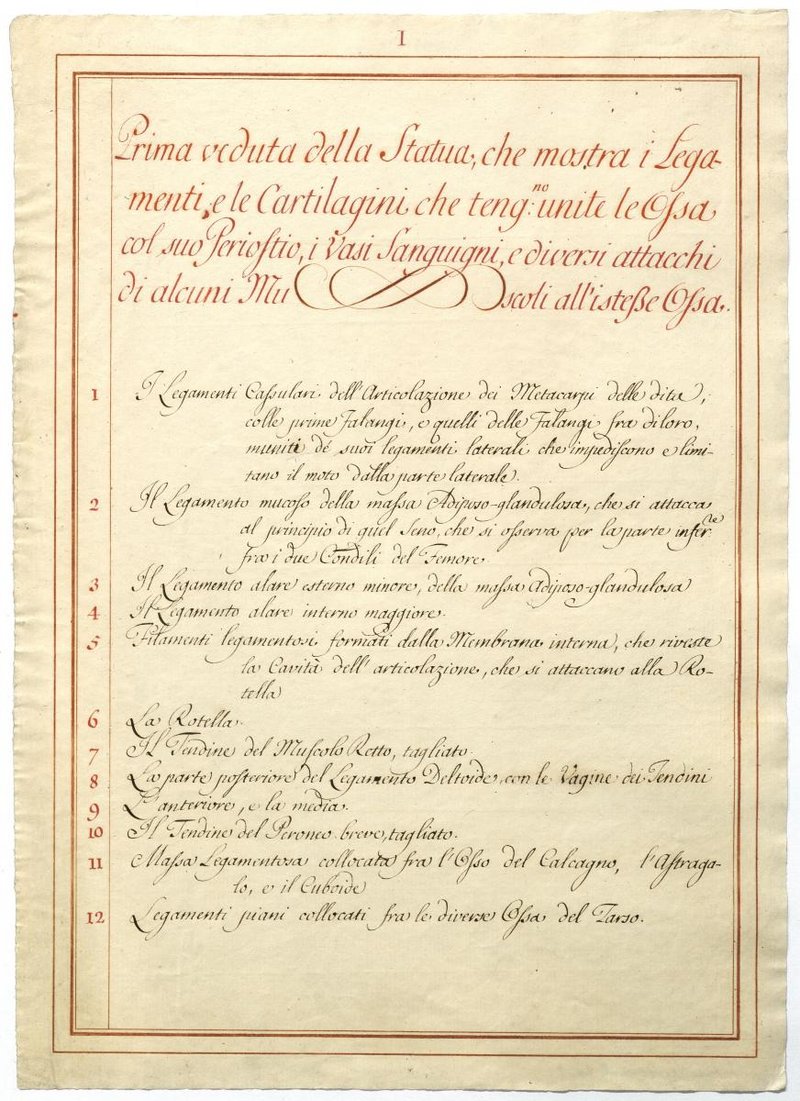 I
Prima veduta della Statua, che mostra i Lega-
menti, e le Cartilagini che teng.no unite le Ossa
col suo Periostio, i Vasi Sanguigni, e diversi attacchi
di alcuni Muscoli all'istesse Ossa.
1 I Legamenti Cassulari dell'Articolazione dei Metacarpi delle dita,
colle prime Falangi, e quelli delle Falangi fra di loro,
muniti de' suoi legamenti laterali che impediscono e limi-
tano il moto dalla parte laterale.
2 Il Legamento mucoso della massa Adiposo-glandulosa, che si attacca
al principio di quel Seno, che si osserva per la parte infer.re
fra i due Condili del Femore.
3 Il Legamento alare esterno minore, della massa Adiposo-glandulosa
4 Il Legamento alare interno maggiore.
5 Filamenti legamentosi formati dalla Membrana interna, che riveste
la Cavità dell'articolazione, che si attaccano alla Ro-
tella
6 La Rotella.
7 Il Tendine del Muscolo Retto, tagliato.
8 La parte posteriore del Legamento Deltoide, con le Vagine dei Tendini
9 L'anteriore, e la media.
10 Il Tendine del Peroneo breve, tagliato.
11 Massa Legamentosa collocata fra l'Osso del Calcagno, l'Astraga-
lo, e il Cuboide
12 Legamenti piani collocati fra le diverse Ossa del Tarso.